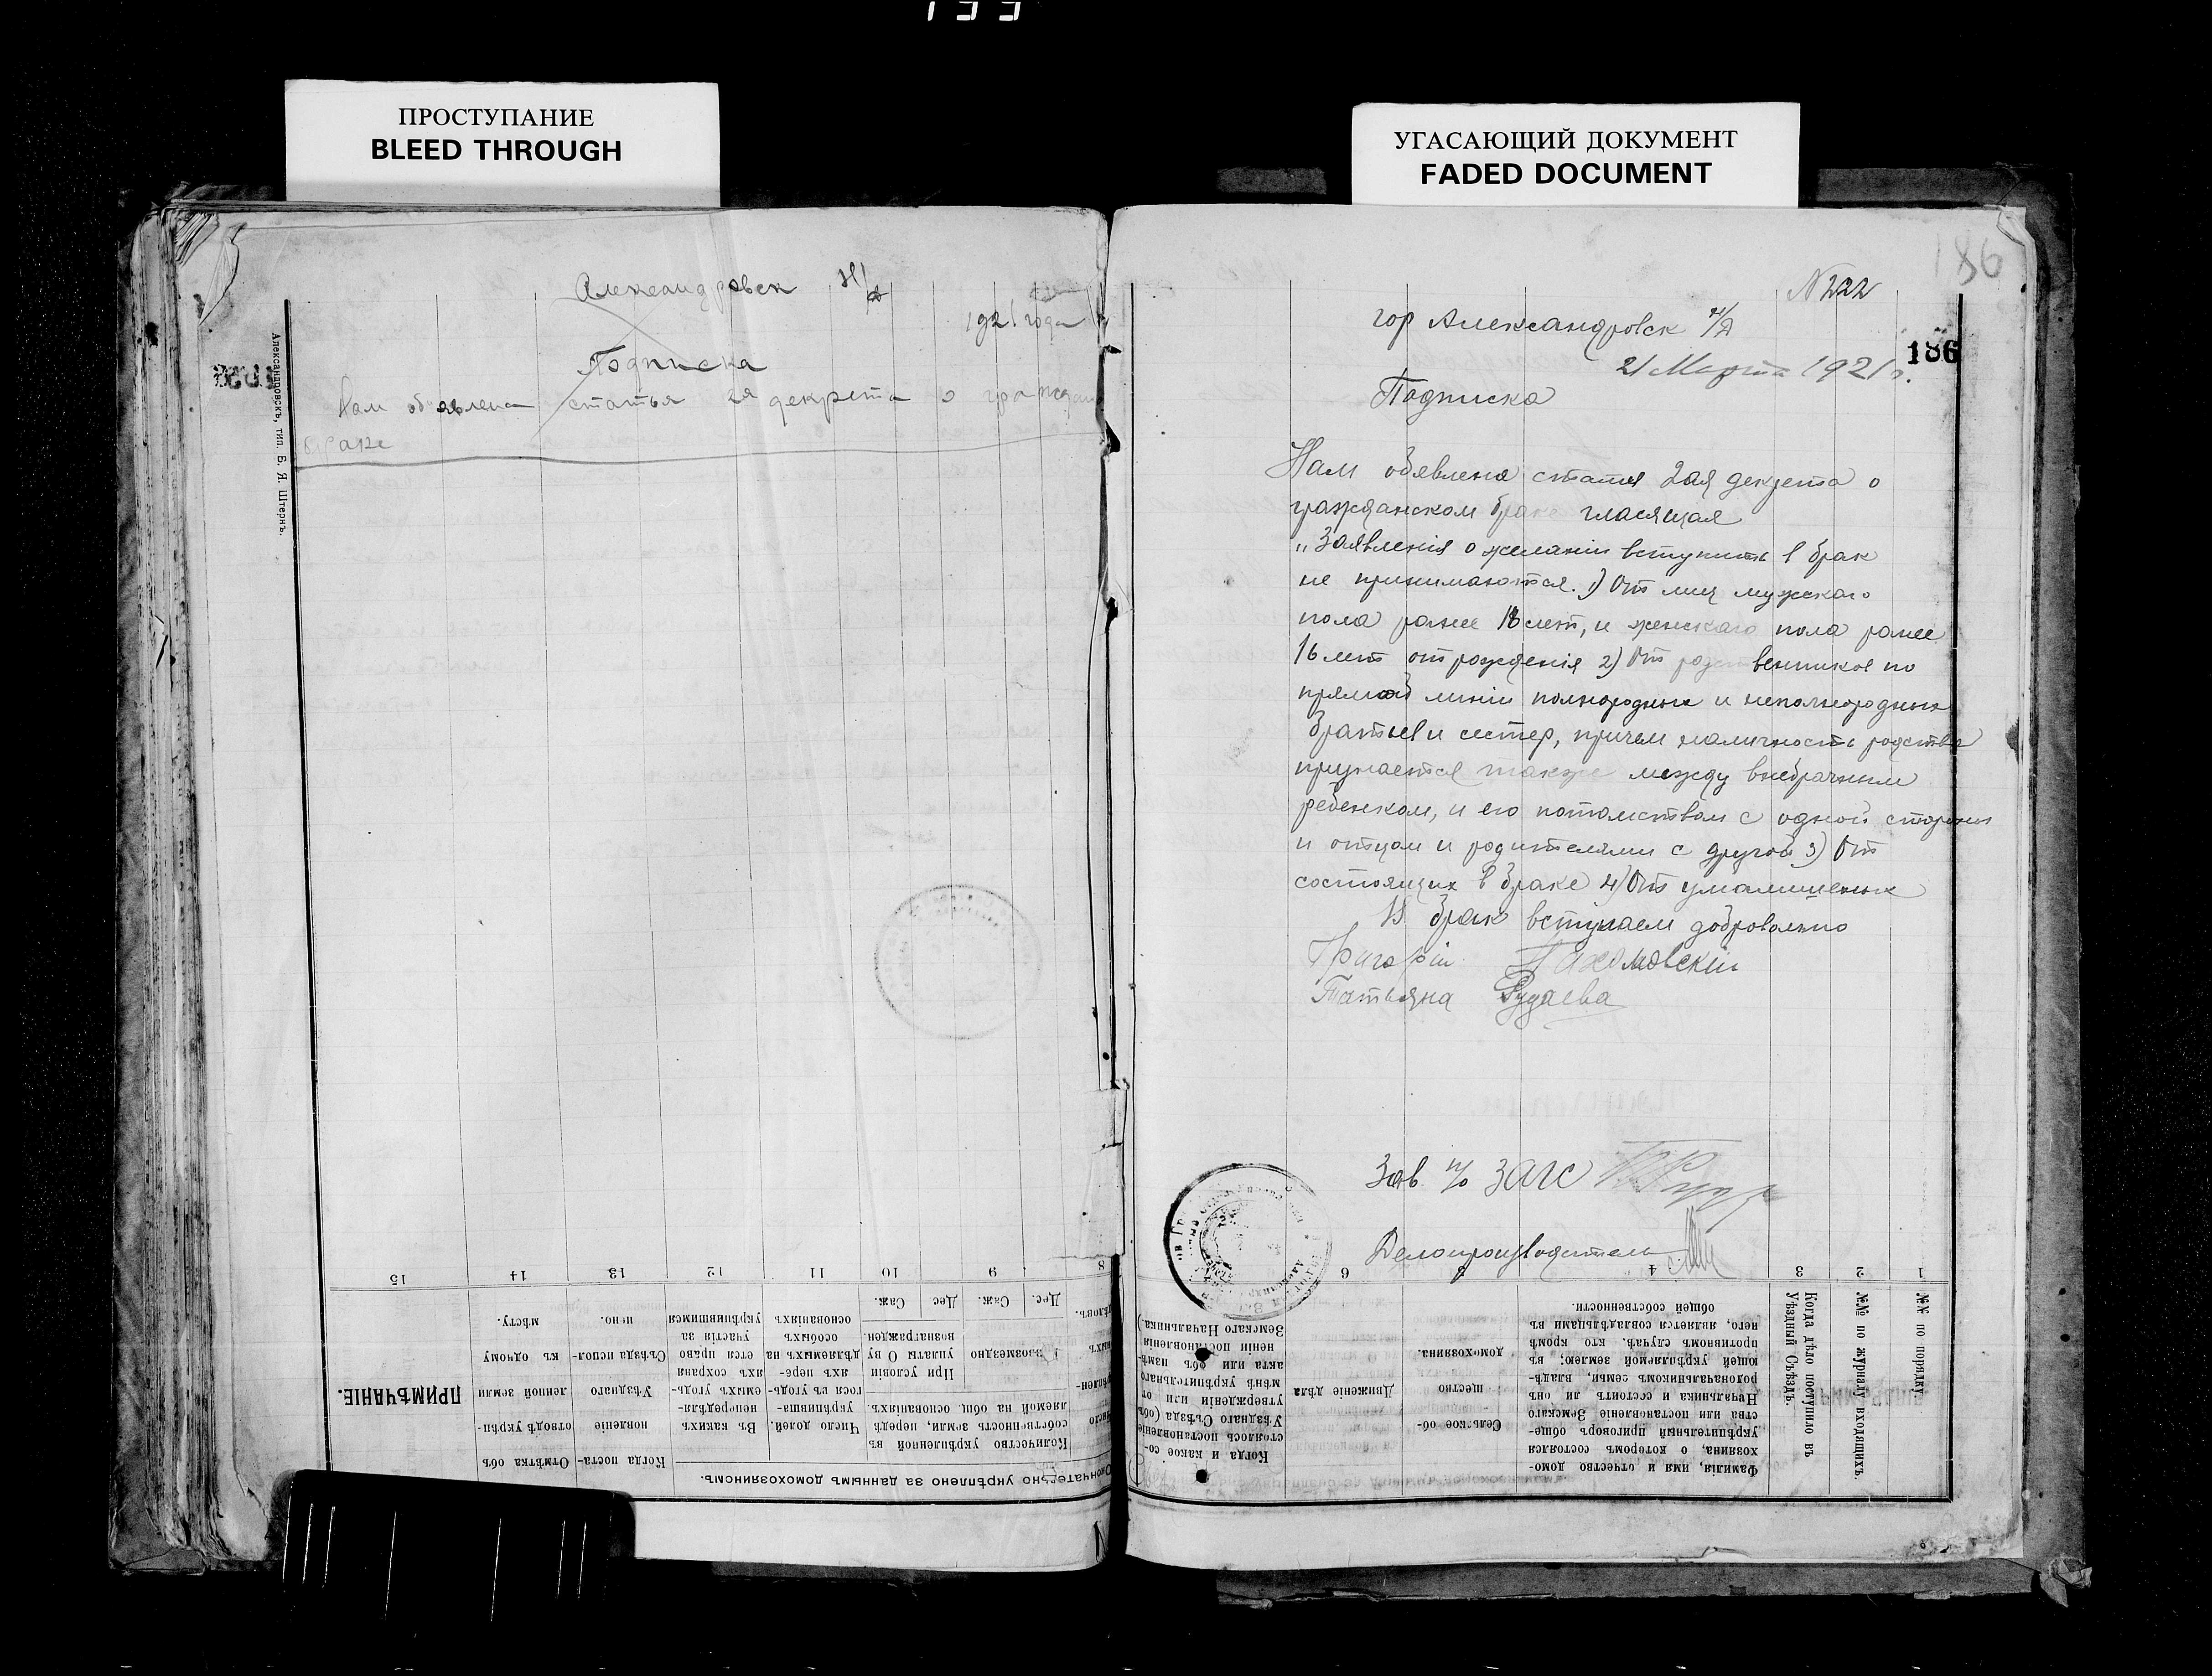 ПРОСТУПАНИЕ
BLEED THROUGH
УГАСАЮЩИЙ ДОКУМЕНТ
FADED DOCUMENT
Александровск
1921 года
Подписка
Нам обявлена статья 2я декрета о граждан
браке
Александровскъ, тип. Б. Я. Штернъ.
186
N 222
гор Александровск н/Д
186
21 Марта 1921 г.
Подписка
Нам обявлена статия 2ая декрета о
гражданском браке гласящая
„Заявленія о желаніи вступить в брак
не принимаются. 1) От лиц мужского
пола ранее 18 лет, и женскаго пола ранее
16 лет от рожденія 2) От родственников по
прямой линіи полнородных и неполнородных
братьев и сестер, причем наличность родства
признается также между внебрачным
ребенком, и его потомством с одной стороны
и отцом и родителями с другой 3) От
состоящих в браке 4) От умалишеных
В брак вступаем добровольно
Григорій Пахомовскій
Татьяна Рудаева
Зав п/о ЗАГС
Делопроизводитель
1
2
3
4
6
9
10
11
12
13
14
15
№№ по порядку.
№№ по журналу входящихъ.
Когда дѣло поступило въ
Уѣздный Съѣздъ.
Фамилія, имя и отчество домо-
хозяина, о которомъ состоялся
укрѣпительный приговоръ обще-
ства или постановленіе Земскаго
Начальника и состоитъ ли онъ
родоначальникомъ семьи, владѣ-
ющей укрѣпляемой землею; въ
противномъ случаѣ, кто кромѣ
него, является совладѣльцами въ
общей собственности.
Сельское об-
щество
домохозяина.
Движеніе дѣла
Когда и какое со-
стоялось постановленіе
Уѣзднаго Съѣзда (объ
утвержденіи или от-
мѣнѣ укрѣпительнаго
акта или объ измѣ-
неніи постановленія
Земскаго Начальника.)
Окончательно укрѣплено за даннымъ домохозяиномъ.
Количество укрѣпленной въ
собственность земли, передѣ-
ляемой на общ. основаніяхъ.
Безвозмездно
При условіи
уплаты О ву
вознагражден.
Дес.
Саж.
Дес
Саж.
Число долей.
укрѣпивше-
гося въ угодь-
яхъ пере-
дѣляемыхъ на
особыхъ
основаніяхъ
Въ какихъ
непередѣля-
емыхъ угодь-
яхъ сохраня
ется право
участія за
укрѣпившимся
Когда поста-
новленіе
Уѣзднаго
Съѣзда испол-
нено.
Отмѣтка объ
отводѣ укрѣп-
ленной земли
къ одному
мѣсту.
ПРИМѢЧАНІЕ.